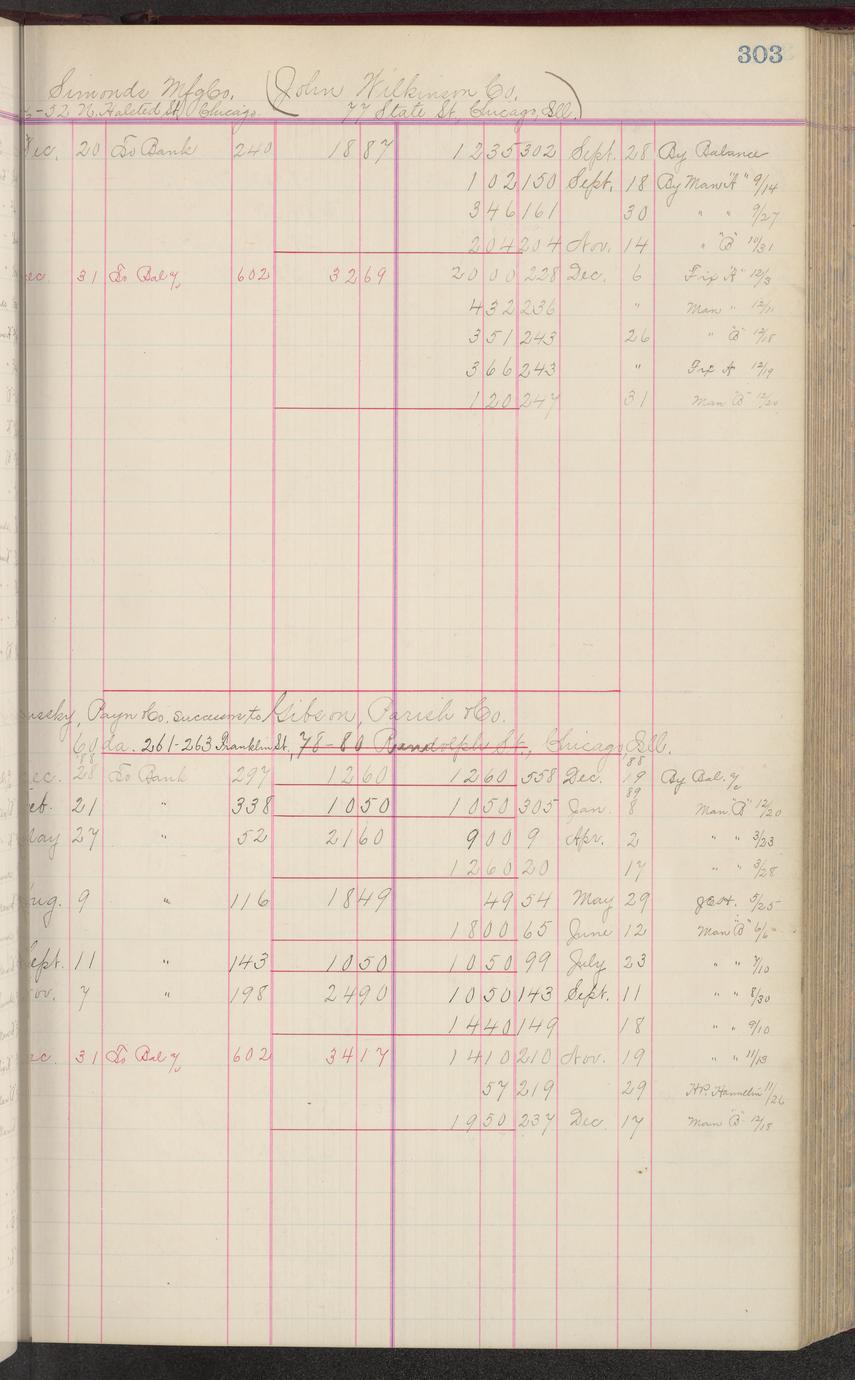 303
Simonds Mfg Co. (John Wilkinson Co.)
-52 N. Halsted St, Chicago. 77 State St, Chicago, Ill.
ec. 20 To Bank 240 18 87 12 35 302 Sept. 28 By Balance
1 02 150 Sept. 18 By Man "A" 9/14
3 46 161 30 " " 9/27
2 04 204 Nov. 14 " "B" 10/31
ec 31 To Bal c/ 602 32 69 20 00 228 Dec. 6 Fix "A" 12/3
4 32 236 " Man " 12/11
3 51 243 26 " "B" 12/18
3 66 243 " Fix A 12/19
1 20 247 31 Man "B" 12/20
ssky, Payn & Co. successors to Gibson, Parish & Co.
60 da. 261-263 Franklin St., 78-80 Randolph St., Chicago, Ill.
'88 '88
ec. 28 To Bank 297 12 60 12 60 558 Dec. 19 By Bal. c/
89
eb. 21 " 338 10 50 10 50 305 Jan. 8 Man "B" 12/20
ay 27 " 52 21 60 9 00 9 Apr. 2 " " 3/23
12 60 20 17 " " 3/28
ug. 9 " 116 18 49 49 54 May 29 5/25
18 00 65 June 12 Man "B" 6/6
ept. 11 " 143 10 50 10 50 99 July 23 " " 7/10
ov. 7 " 198 24 90 10 50 143 Sept. 11 " " 8/30
14 40 149 18 " " 9/10
ec. 31 To Bal c/ 602 34 17 14 10 210 Nov. 19 " " 11/13
57 219 29 H.P. 11/26
19 50 237 Dec. 17 Man "B" 12/13